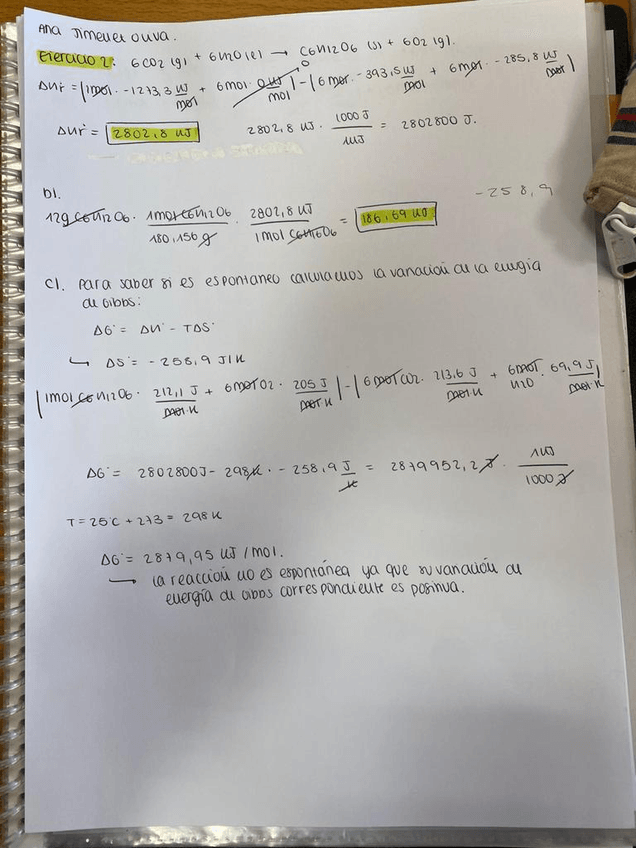 Ana Jimenez Oliva.
Ejercicio 2: 6CO2 (g) + 6H2O (l) → C6H12O6 (s) + 6O2 (g).
ΔHr° = (1mol · -1273,3 kJ/mol + 6mol · 0 kJ/mol) - (6 mol · -393,5 kJ/mol + 6mol · -285,8 kJ/mol)
0
ΔHr° = 2802,8 kJ 2802,8 kJ · 1000 J / 1kJ = 2802800 J.
b).
12g C6H12O6 · 1mol C6H12O6 / 180,156 g · 2802,8 kJ / 1mol C6H12O6 = 186,69 kJ
-258,9
c). Para saber si es espontaneo calculamos la variación de la energía
de Gibbs:
ΔG° = ΔH° - TΔS°
↳ ΔS° = -258,9 J/K
(1mol C6H12O6 · 212,1 J / mol·K + 6mol O2 · 205 J / mol·K) - (6 mol CO2 · 213,6 J / mol·K + 6mol H2O · 69,9 J / mol·K)
ΔG° = 2802800J - 298K · -258,9 J/K = 2879952,2 J · 1kJ / 1000 J
T = 25°C + 273 = 298 K
ΔG° = 2879,95 kJ/mol.
↳ la reacción no es espontánea ya que su variación de
energía de Gibbs correspondiente es positiva.